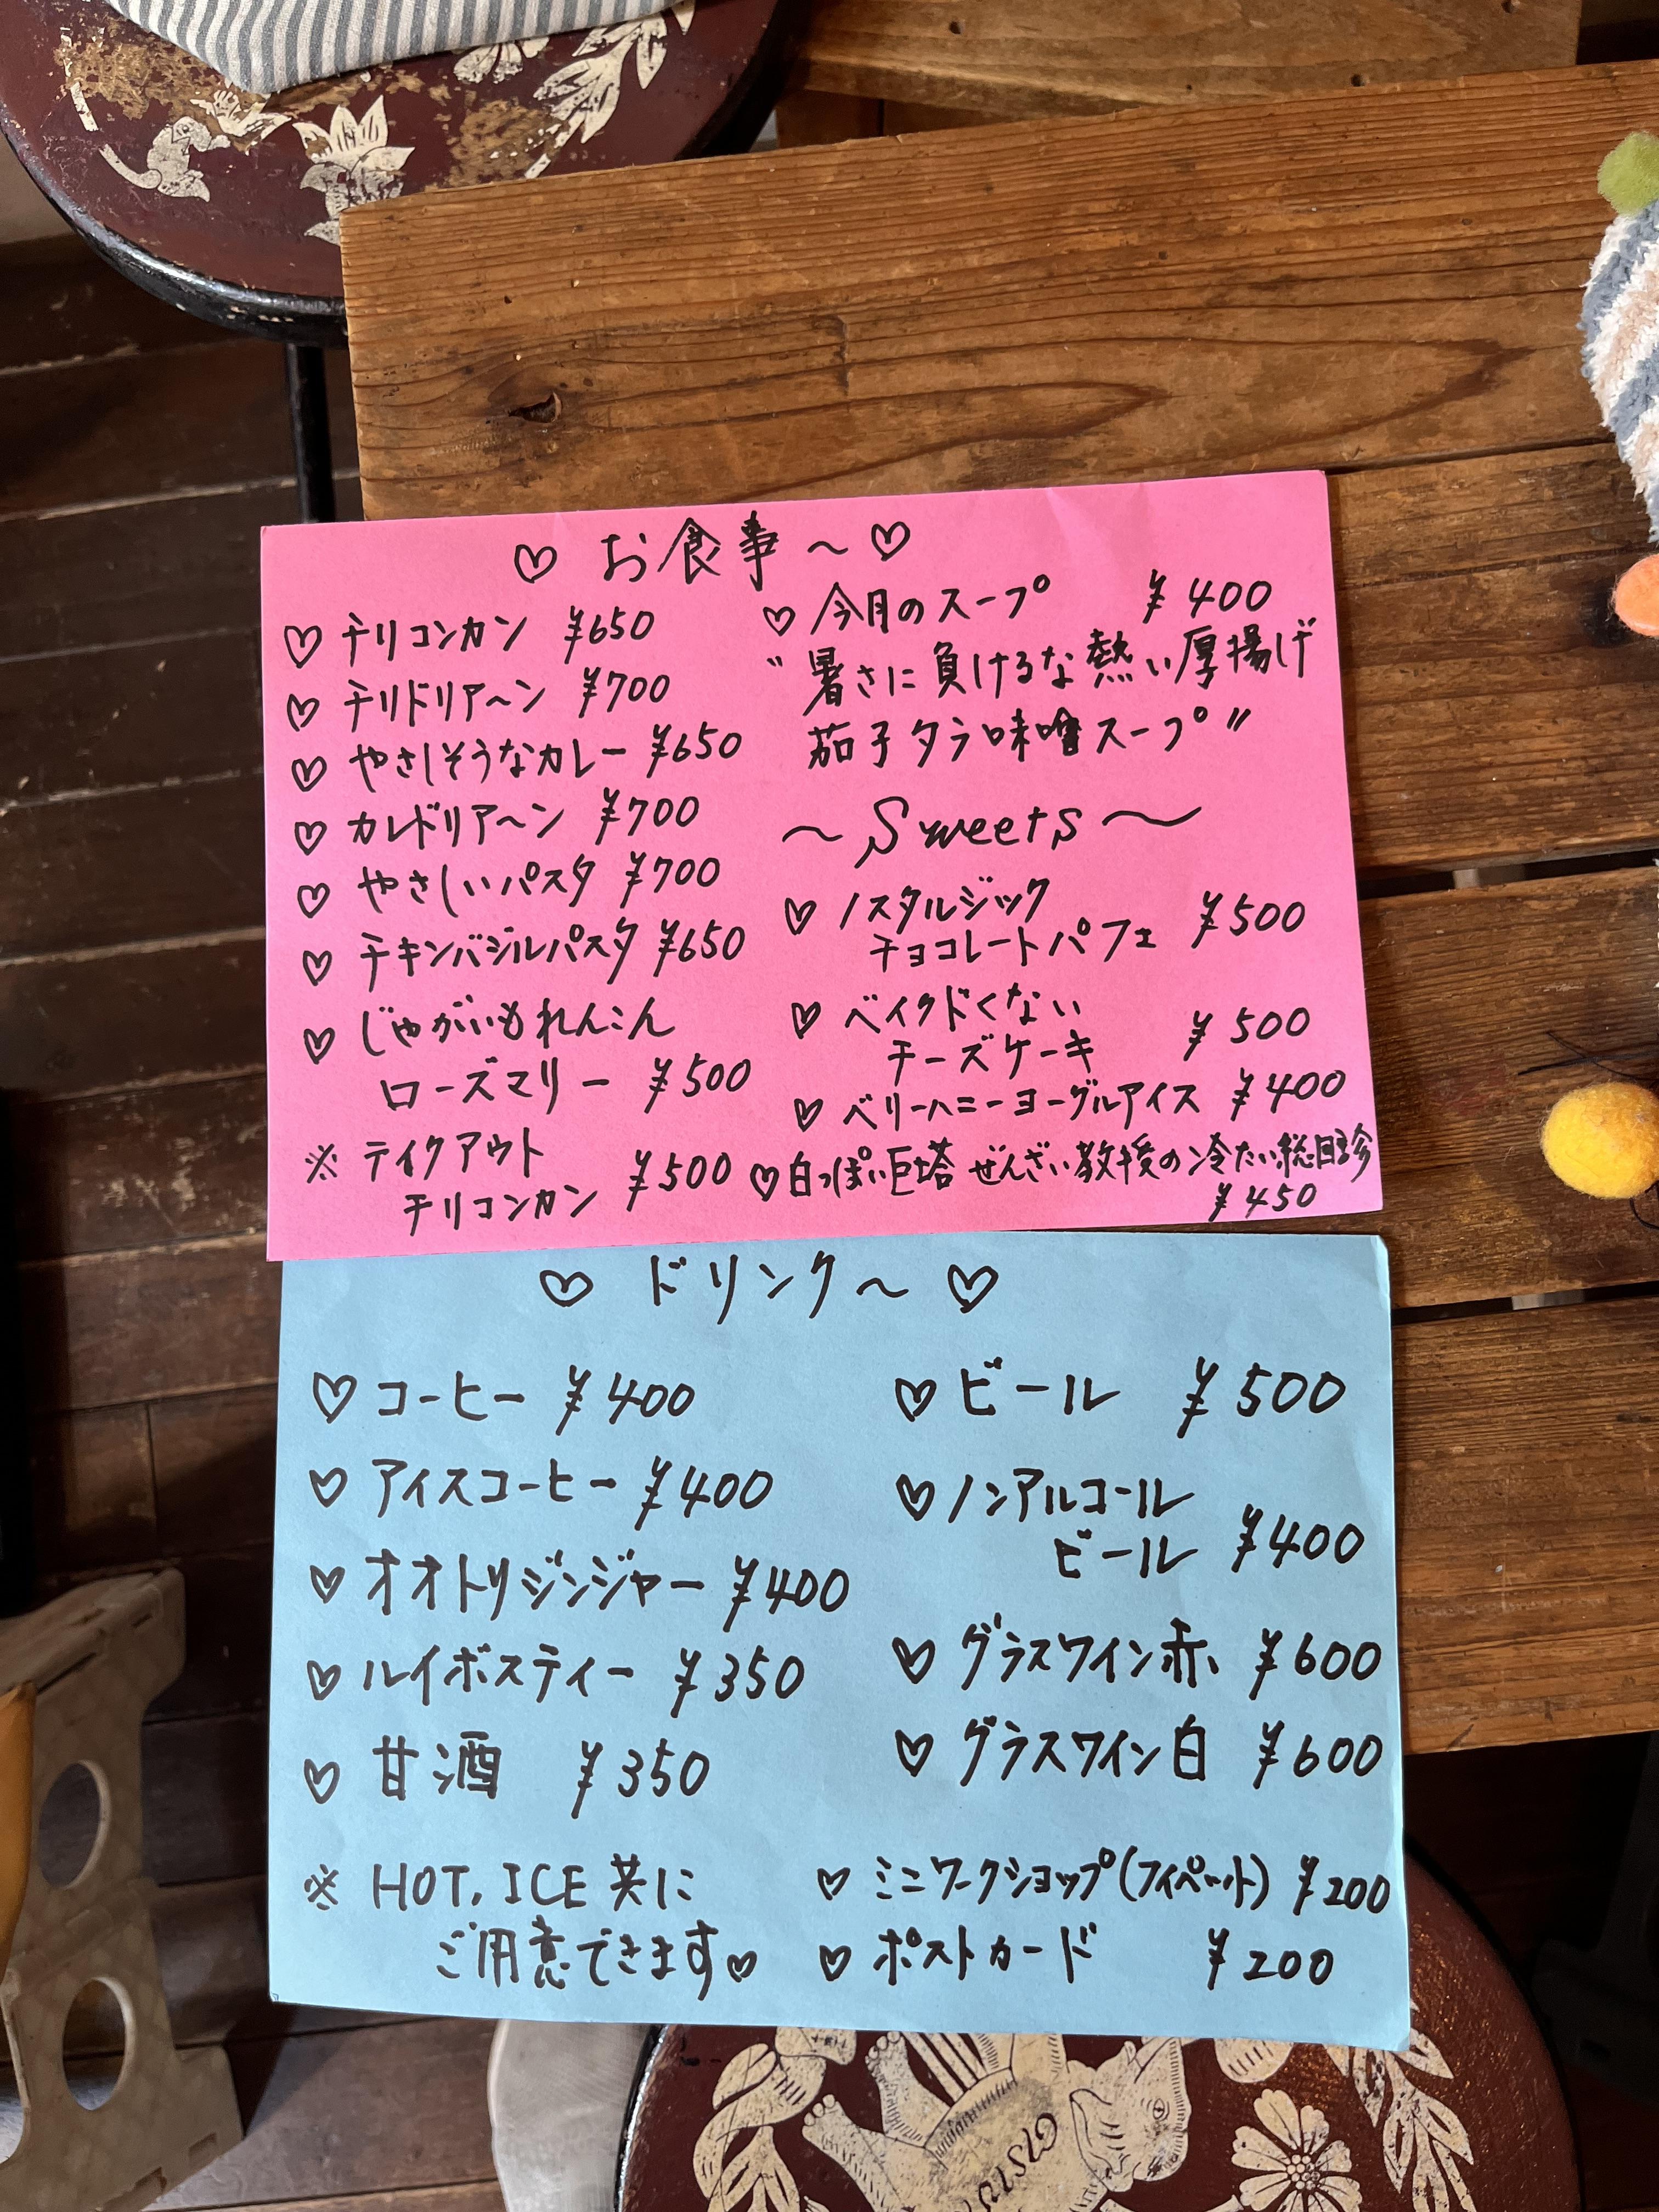 ♡ お食事〜♡
♡ チリコンカン ¥650
♡ チリドリア〜ン ¥700
♡ やさしそうなカレー ¥650
♡ カレドリア〜ン ¥700
♡ やさしいパスタ ¥700
♡ チキンバジルパスタ ¥650
♡ じゃがいもれんこん
ローズマリー ¥500
※ テイクアウト
チリコンカン ¥500
♡ 今月のスープ ¥400
"暑さに負けるな熱い厚揚げ
茄子タラ味噌スープ"
〜Sweets〜
♡ ノスタルジック
チョコレートパフェ ¥500
♡ ベイクドくない
チーズケーキ ¥500
♡ ベリーハニーヨーグルアイス ¥400
♡白っぽい巨塔 ぜんざい教授の冷たい総回診
¥450
♡ ドリンク〜 ♡
♡ コーヒー ¥400
♡ アイスコーヒー ¥400
♡ オオトリジンジャー ¥400
♡ ルイボスティー ¥350
♡ 甘酒 ¥350
※ HOT, ICE 共に
ご用意できます♡
♡ ビール ¥500
♡ ノンアルコール
ビール ¥400
♡ グラスワイン赤 ¥600
♡ グラスワイン白 ¥600
♡ ミニワークショップ(フィペット) ¥200
♡ ポストカード ¥200